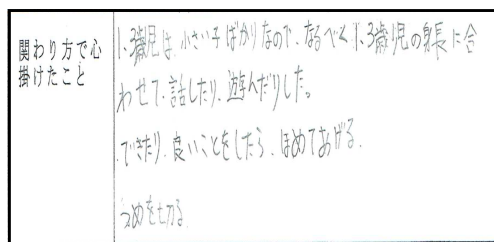 関わり方で心
掛けたこと
1、3歳児は小さい子ばかりなので、なるべく1、3歳児の身長に合
わせて、話したり、遊んだりした。
・できたり、良いことをしたら、ほめてあげる。
つめを切る